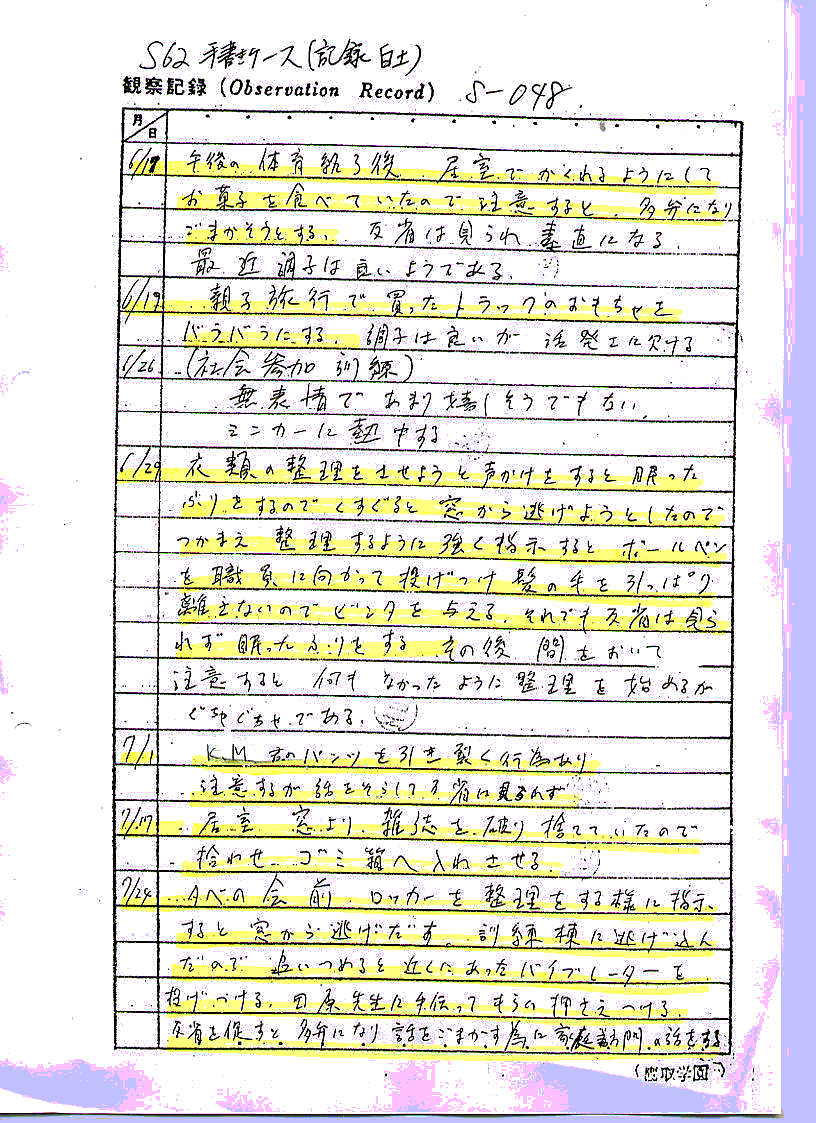 S62 手書きケース(記録 白土)
観察記録 (Observation Record) S-048
月
日
6/18 午後の体育終了後、居室でかくれるようにして
お菓子を食べていたので注意すると、多弁になり
ごまかそうとする。反省は見られ素直になる。
最近調子は良いようである。
6/19 親子旅行で買ったトラックのおもちゃを
バラバラにする。調子は良いが活発さに欠ける
6/26 (社会参加訓練)
無表情であまり嬉しそうでもない。
ミニカーに熱中する
6/29 衣類の整理をさせようと声かけをすると眠った
ふりをするのでくすぐると窓から逃げようとしたので
つかまえ整理するように強く指示するとボールペン
を職員に向かって投げつけ髪の毛を引っぱり
離さないのでビンタを与える。それでも反省は見ら
れず眠ったふりをする。その後間をおいて
注意すると何もなかったように整理を始めるが
ぐちゃぐちゃである。
7/1 KM君のパンツを引き裂く行為あり
注意するが話をそらして反省は見られず
7/17 居室窓より雑誌を破り捨てていたので
拾わせゴミ箱へ入れさせる。
7/24 夕べの会前、ロッカーを整理をする様に指示
すると窓から逃げだす。訓練棟に逃げ込ん
だので追いつめると近くにあったバイブレーターを
投げつける。田原先生に手伝ってもらい押さえつける。
反省を促すと多弁になり話をごまかす為に家庭訪問の話をする
学園)